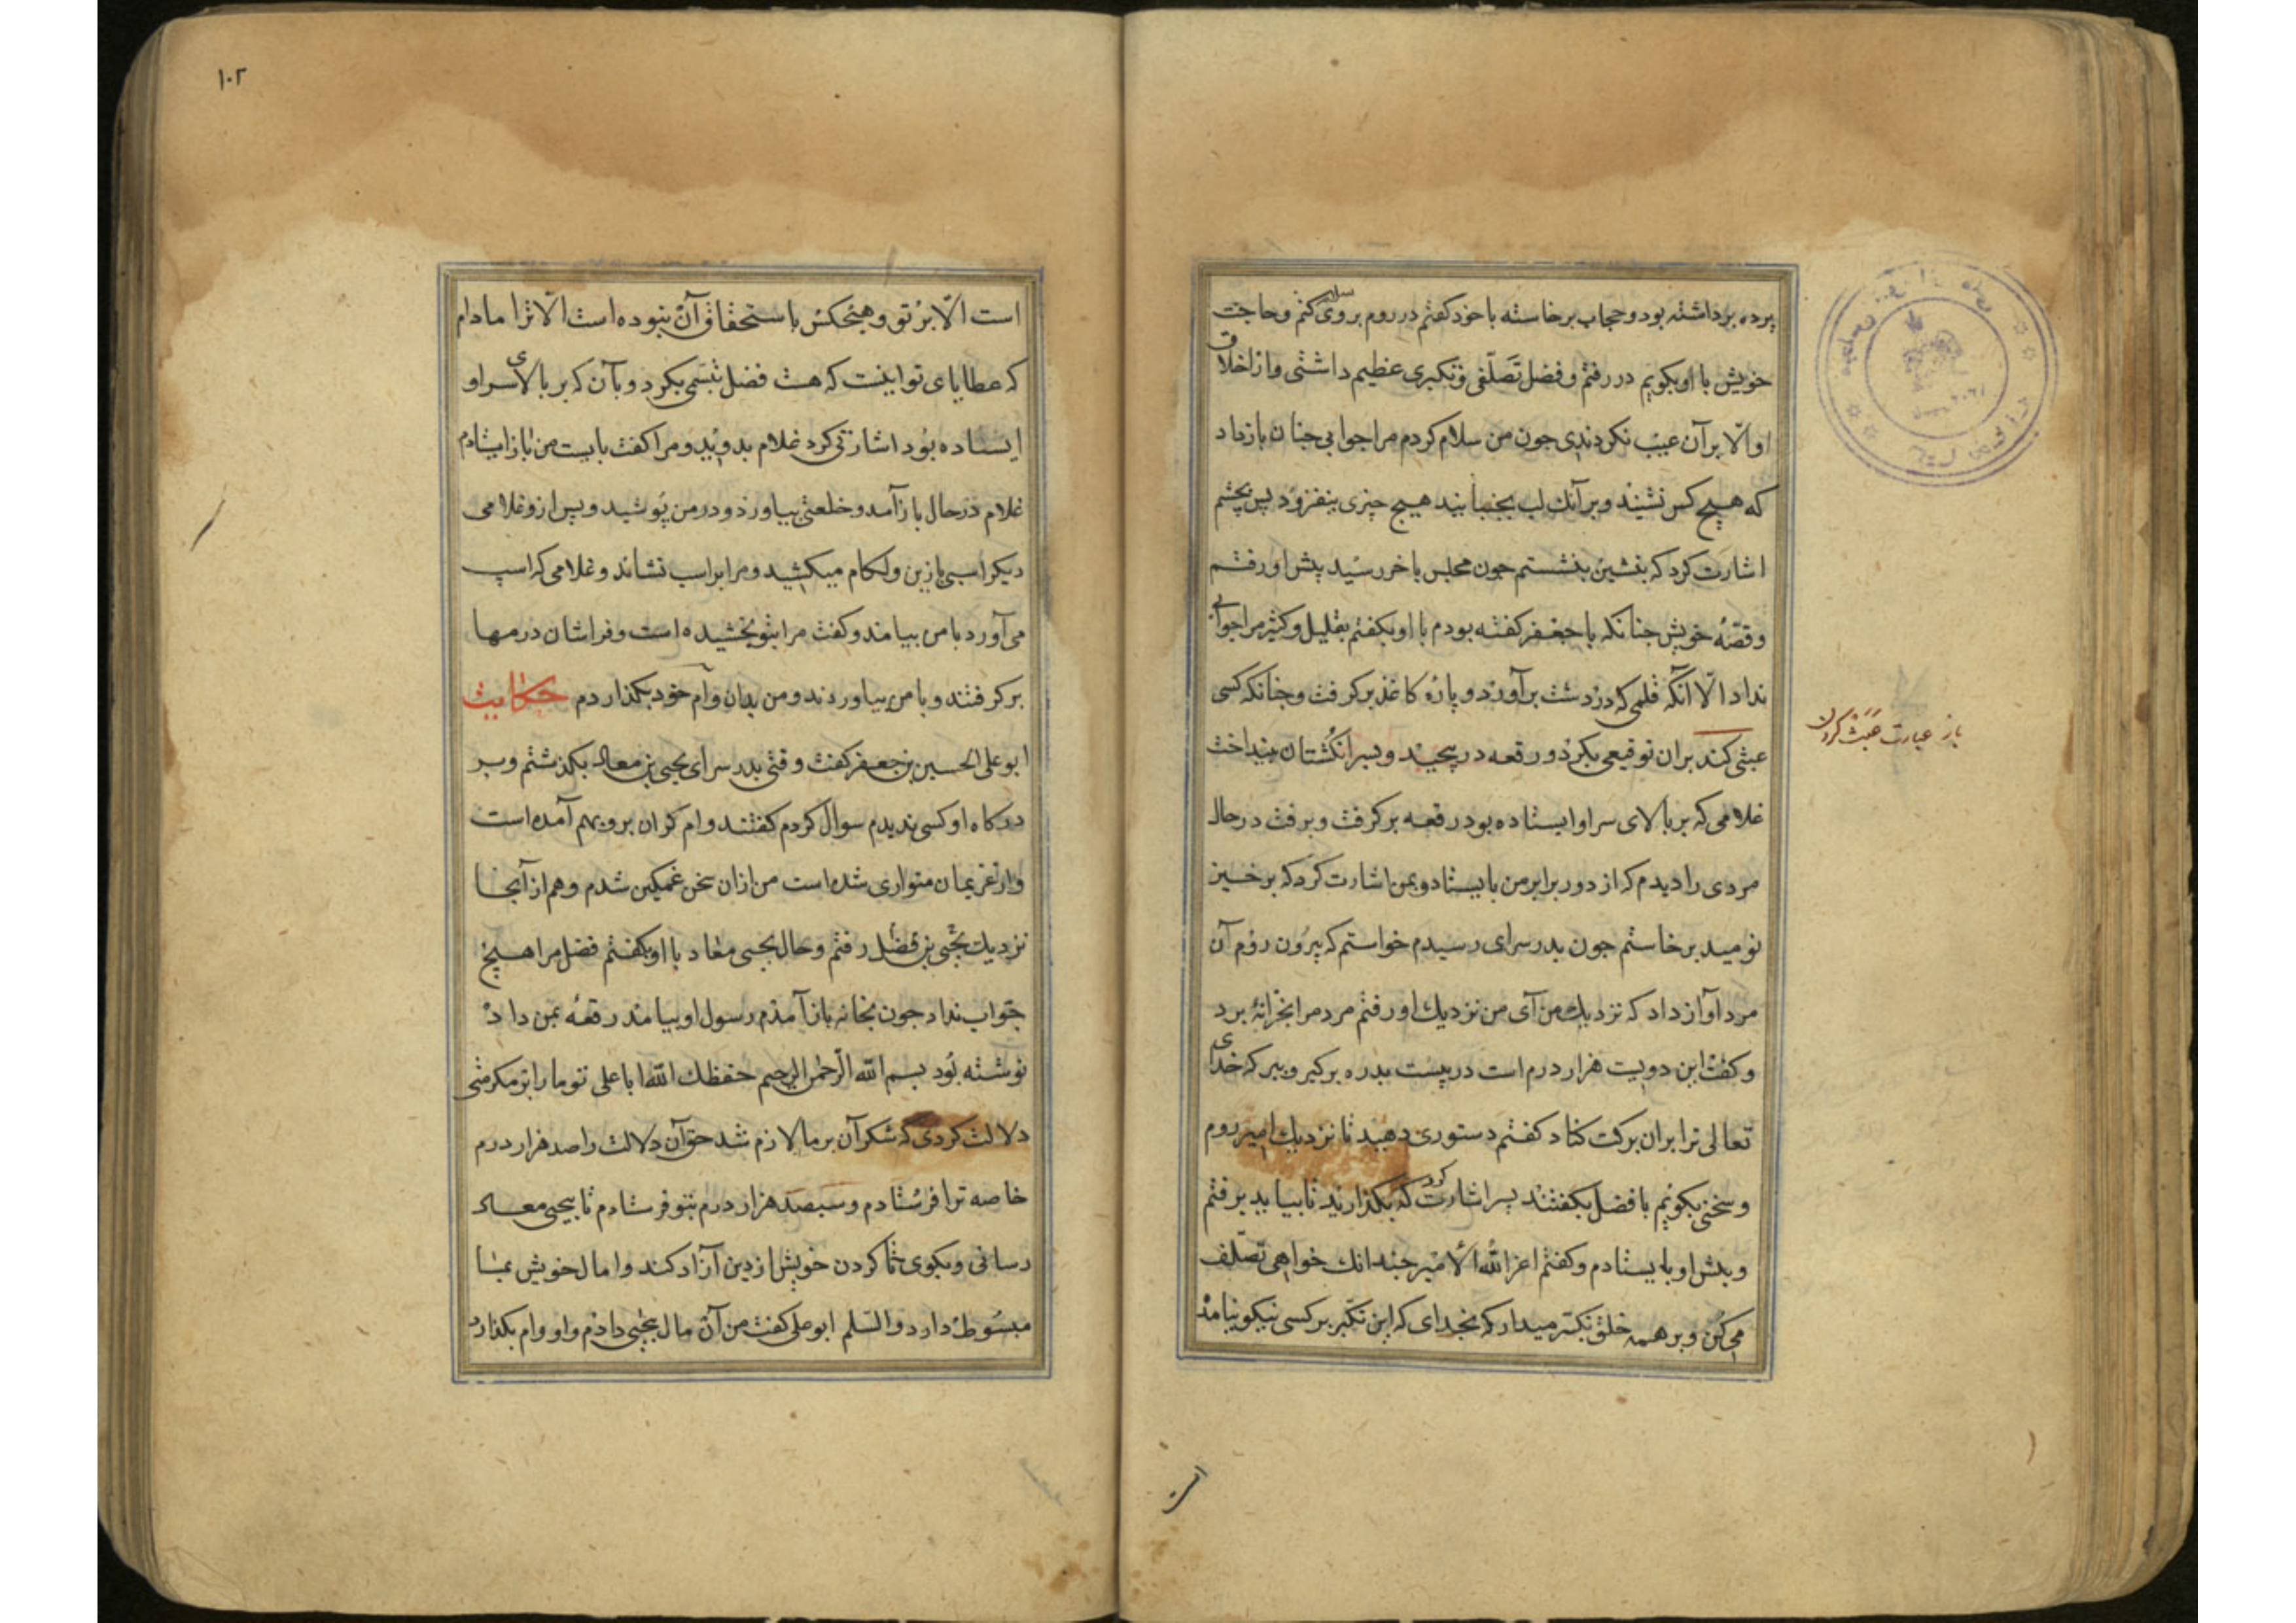 پرده برداشته بود و حجاب برخاسته با خود کفتم در روم بروی سلام کنم و حاجت
خویش با او بکویم در رفتم و فضل تصلّفی و تکبری عظیم داشتی و از اخلاق
او الّا بر آن عیب نکردندی جون من سلام کردم مرا جوابی جنان باز داد
که هیچ کس نشیند و بر آنك لب بجنبانید هیچ چیزی بنفزود پس بچشم
اشارت کرد که بنشین بنشستم جون مجلس باخر رسید پیش او رفتم
و قصّهٔ خویش جنانکه با جعفر کفته بودم با او بکفتم بقلیل و کثیر مرا جوابی
نداد الّا آنکه قلمی که در دست برآورد و پارهٔ کاغذ برکرفت و جنانکه کسی
عبثی کند بران توقیعی بکرد و رقعه در پیچید و بسر انکشتان بینداخت
باز عبارت عبث کردن
غلامی که بر بالای سر او ایستاده بود رقعه برکرفت و برفت در حال
مردی را دیدم که از دور برابر من بایستاد و بمن اشارت کرد که برخیز
نومید برخاستم جون بدر سرای رسیدم خواستم که بیرون روم آن
مرد آواز داد که نزدیك من آی من نزدیك او رفتم مرد مرا بخزانهٔ برد
و کفت این دویست هزار درم است در بیست بدره برکیر و ببر که خدای
تعالی ترا بران برکت کناد کفتم دستوری دهید تا نزدیك امیر روم
و سخنی بکویم با فضل بکفتند بسر اشارت کرد که بکذارید تا بیاید برفتم
و پیش او بایستادم و کفتم اعز الله الامیر جندانك خواهی تصلّف
می کن و بر همه خلق تکبّر میدار که بخدای که این تکبّر بر کسی نیکو نیامد
است
۱۰۲
است الّا بر تو و هیچکس باستحقاق آن نبوده است الّا ترا مادام
که عطایای تو اینست که هست فضل تبسّمی بکرد و بآن که بر بالای سر او
ایستاده بود اشارتی کرد غلام بدوید و مرا کفت بایست من باز ایستادم
غلام در حال باز آمد و خلعتی بیاورد و در من پوشید و پس ازو غلامی
دیکر اسبی با زین و لکام میکشید و مرا بر اسب نشاند و غلامی که اسپ
می آورد با من بیامد و کفت مرا بتو بخشیده است و فراشان درمها
برکرفتند و با من بیاوردند و من بدان وام خود بکذاردم حکایت
ابو علی الحسین بن جعفر کفت وقتی بدر سرای یحیی بن معاد بکذشتم و بر
درکاه او کسی ندیدم سوال کردم کفتند وام کران برو بهم آمده است
و از غریمان متواری شده است من ازان سخن غمکین شدم و هم از آنجا
نزدیك یحیی بن فضل رفتم و حال یحیی معاد با او بکفتم فضل مرا هیچ
جواب نداد جون بخانه باز آمدم رسول او بیامد رقعهٔ بمن داد
نوشته بود بسم الله الرّحمن الرحیم حفظك الله ابا علی تو ما را بر مکرمتی
دلالت کردی که شکر آن بر ما لازم شد حق آن دلالت را صد هزار درم
خاصه ترا فرستادم و سیصد هزار درم بتو فرستادم تا بیحیی معاد
رسانی و بکوی تا کردن خویش از دین آزاد کند و امال خویش بما
مبسوط دارد والسّلم ابو علی کفت من آن مال بیحیی دادم و او وام بکذارد